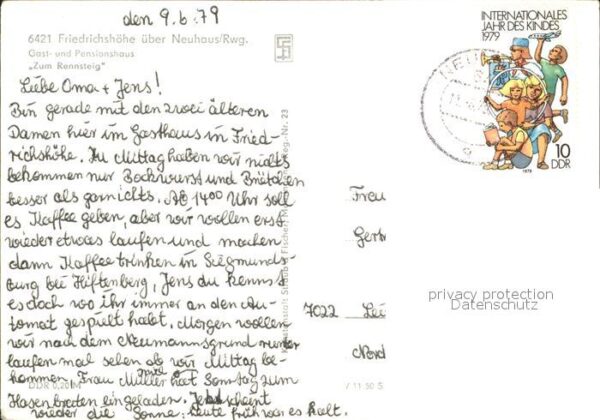 den 9.6.79
6421 Friedrichshöhe über Neuhaus/Rwg.
Gast- und Pensionshaus
„Zum Rennsteig"
Liebe Oma + Jens!
Bin gerade mit den zwei älteren
Damen hier im Gasthaus in Fried-
richshöhe. Zu Mittag haben wir nichts
bekommen nur Bockwurst und Brötchen
besser als garnichts. Ab 1400 Uhr soll
es Kaffee geben, aber wir wollen erst
wieder etwas laufen und machen
dann Kaffee trinken in Siegmunds-
burg bei Hiftenberg, Jens du kennst
es doch wo ihr immer an den Au-
tomat gespielt habt. Morgen wollen
wir nach dem Neumannsgrund runter
laufen mal sehen ob wir Mittag be-
kommen. Frau Müller hat Sonntag zum
Hasenbraten eingeladen. Jetzt scheint
wieder die Sonne, heute früh war es kalt.
DDR 0,20 M
Reg.-Nr. 23
INTERNATIONALES
JAHR DES KINDES
1979
10
DDR
1979
Frau
Gert
7022 Lei
Nord
privacy protection
Datenschutz